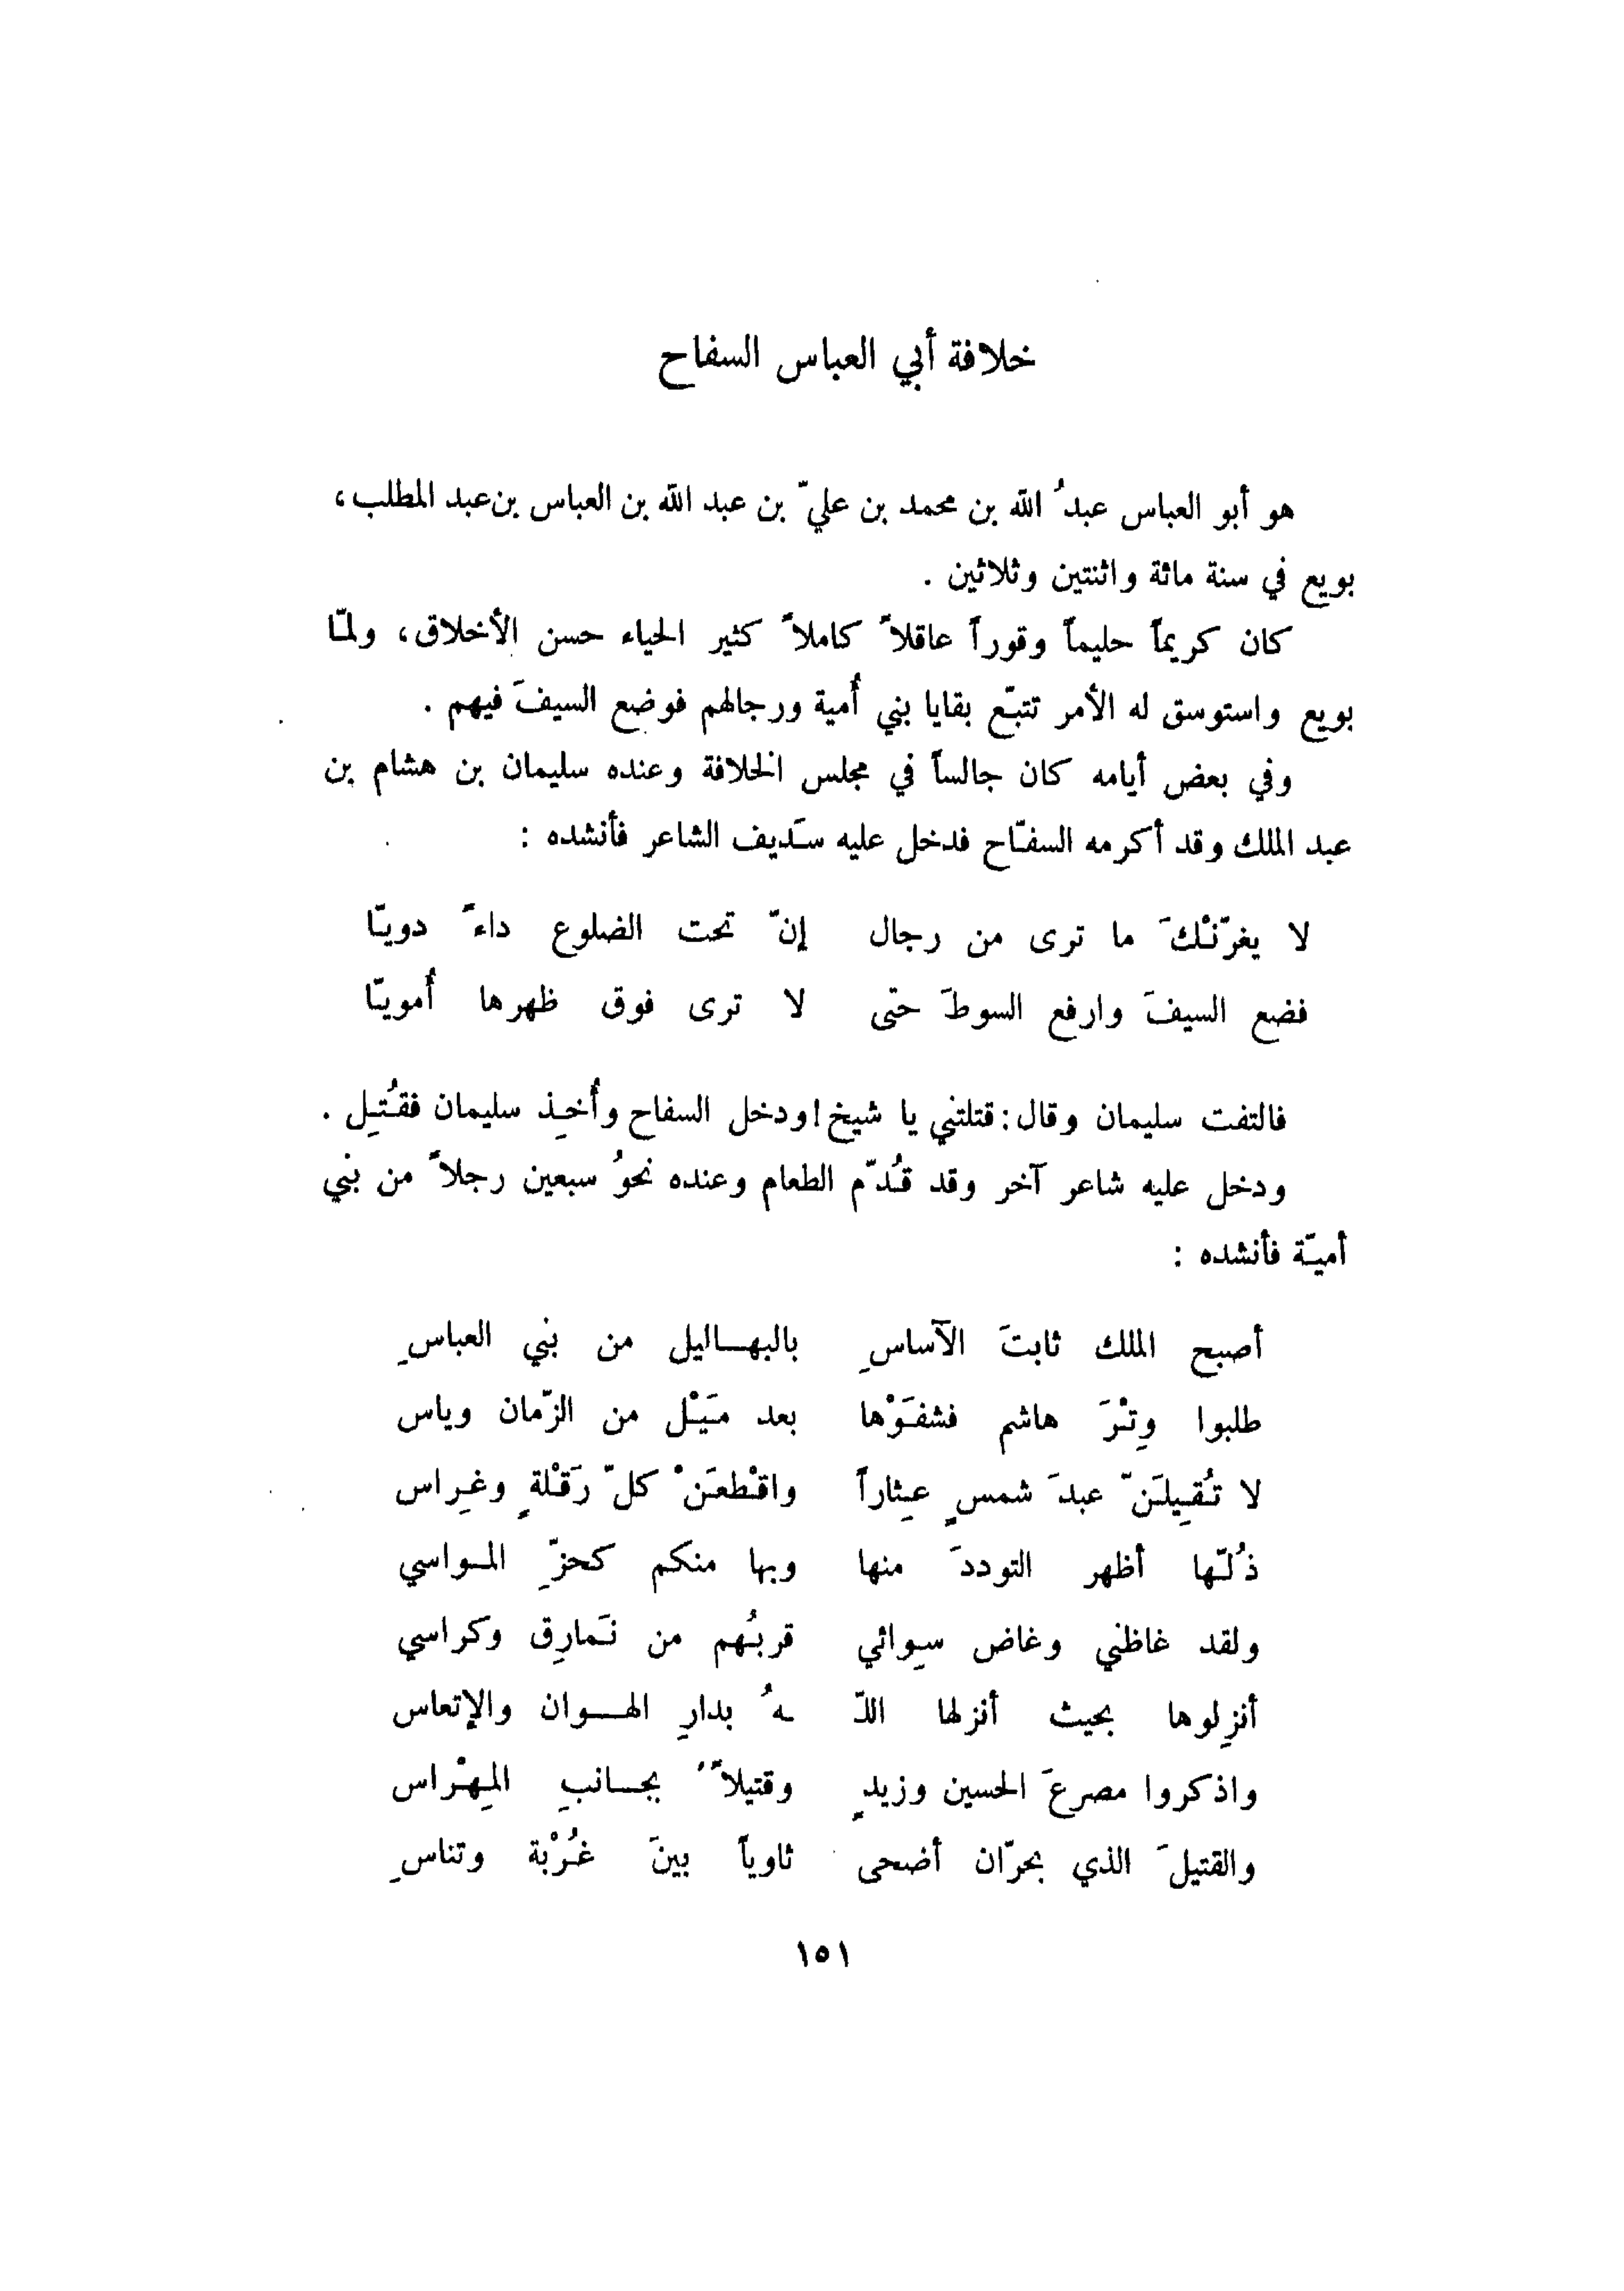 خلافة أبي العباس السفاح
هو أبو العباس عبدُ الله بن محمد بن عليّ بن عبد الله بن العباس بن عبد المطلب،
بويع في سنة مائة واثنتين وثلاثين .
كان كريماً حليماً وقوراً عاقلاً كاملاً كثير الحياء حسن الأخلاق، ولمّا
بويع واستوسق له الأمر تتبّع بقايا بني أُمية ورجالهم فوضع السيفَ فيهم .
وفي بعض أيامه كان جالساً في مجلس الخلافة وعنده سليمان بن هشام بن
عبد الملك وقد أكرمه السفّاح فدخل عليه سَديف الشاعر فأنشده :
لا يغرّنْكَ ما ترى من رجال إنّ تحت الضلوع داءً دويّا
فضع السيفَ وارفع السوطَ حتى لا ترى فوق ظهرها أُمويّا
فالتفت سليمان وقال : قتلتني يا شيخ ! ودخل السفاح وأُخِذ سليمان فقُتِل .
ودخل عليه شاعر آخر وقد قُدّم الطعام وعنده نحوُ سبعين رجلاً من بني
أميّة فأنشده :
أصبح الملك ثابتَ الآساسِ بالبهاليل من بني العباسِ
طلبوا وِتْرَ هاشم فشفَوْها بعد مَيْل من الزّمان وياس
لا تُقِيلَنّ عبدَ شمسٍ عِثاراً واقْطعَنْ كلّ رَقْلةٍ وغِراس
ذُلّها أظهر التوددَ منها وبها منكم كحزِّ المواسي
ولقد غاظني وغاض سِوائي قربُهم من نَمارِق وكراسي
أنزِلوها بحيث أنزلها اللّـ ـهُ بدارِ الهوان والإتعاس
واذكروا مصرعَ الحسين وزيدٍ وقتيلاً بجانبِ المِهْراس
والقتيلَ الذي بحرّان أضحى ثاوياً بينَ غُرْبة وتناسِ
١٥١